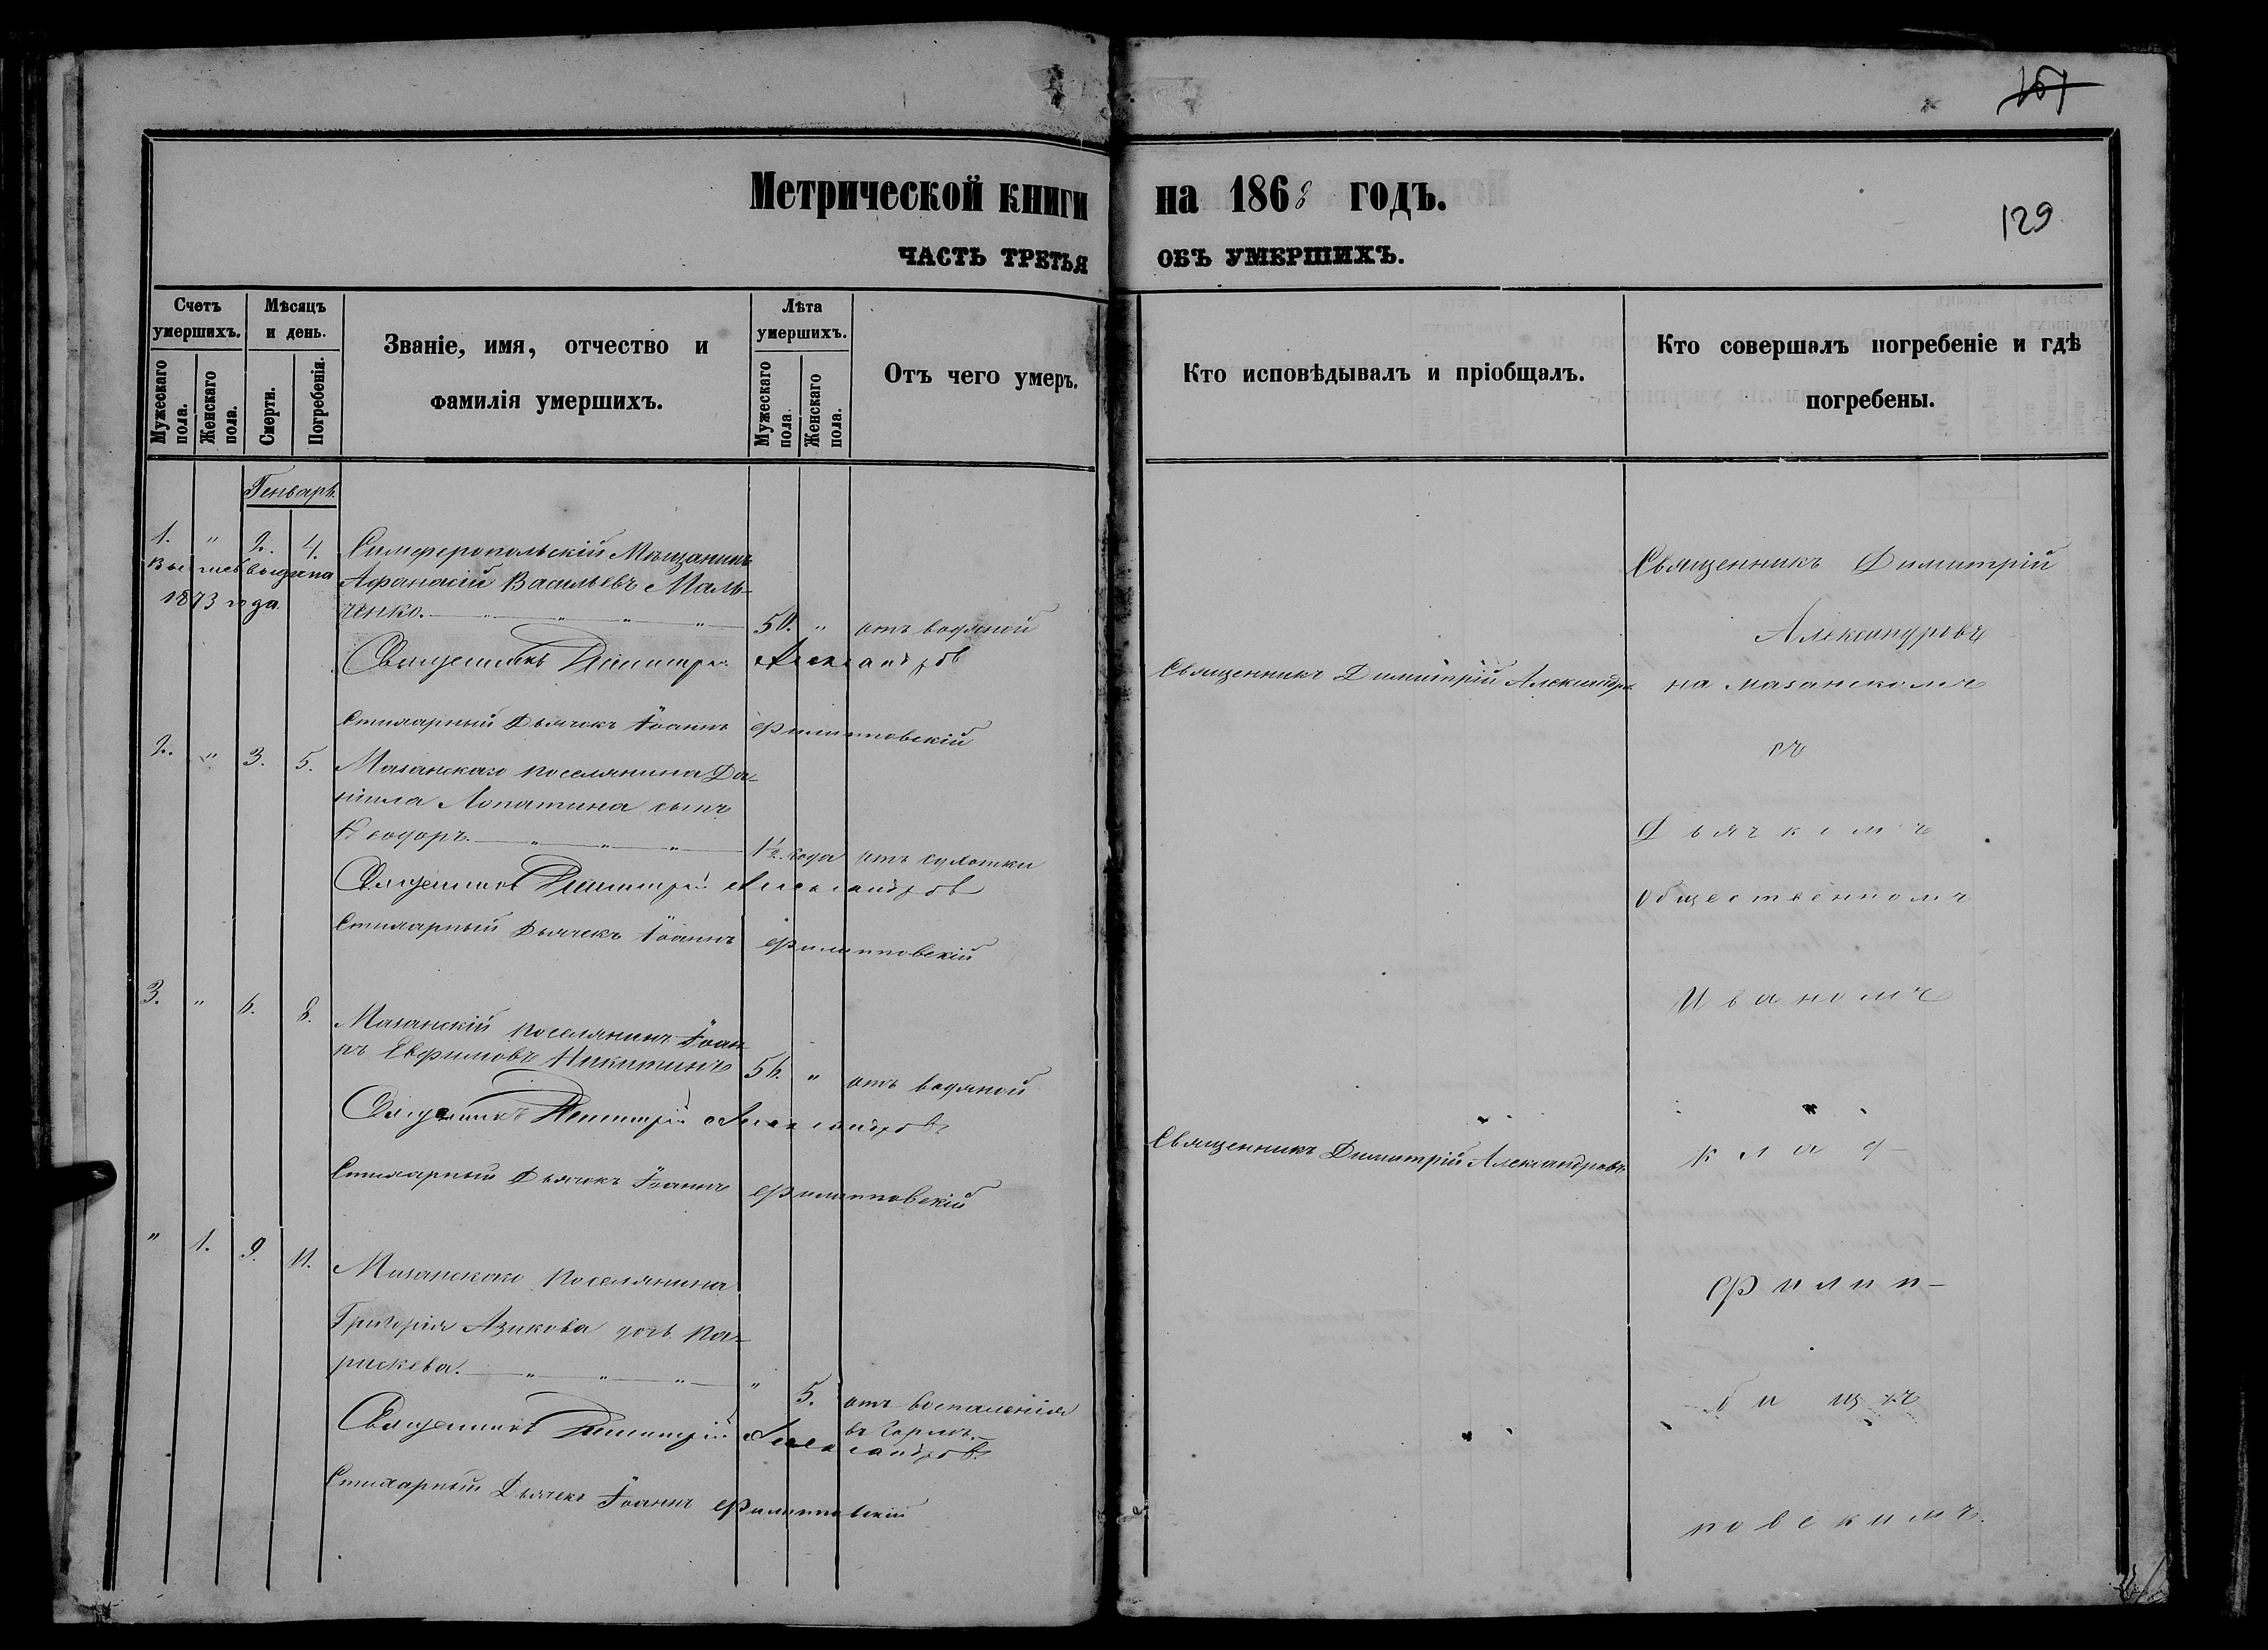 167
Метрической книги на 1868 годъ.
129
ЧАСТЬ ТРЕТЬЯ ОБЪ УМЕРШИХЪ.
Счетъ умершихъ.
Мѣсяцъ и день.
Званіе, имя, отчество и фамилія умершихъ.
Лѣта умершихъ.
Отъ чего умеръ.
Кто исповѣдывалъ и пріобщалъ.
Кто совершалъ погребеніе и гдѣ погребены.
Мужескаго пола.
Женскаго пола.
Смерти.
Погребенія.
Мужескаго пола.
Женскаго пола.
Генварь.
1. " 2. 4. Симферопольскій Мѣщанинъ
выдана Афанасій Васильевъ Маль-
1873 года
ченко. " " " 50. " отъ водяной
Священникъ Димитрій Александров
Стихарный Дьячекъ Іоаннъ Филипповскій
2. " 3. 5. Мазанскаго поселянина Да-
ніила Лопатина сынъ
Ѳеодоръ. " " " 1½ года отъ сухотки
Священникъ Димитрій Александров
Стихарный Дьячекъ Іоаннъ Филипповскій
3. " 6. 8. Мазанскій поселянинъ Іоан
нъ Евфимовъ Никитинъ 56. " отъ водяной
Священникъ Димитрій Александровъ
Стихарный Дьячекъ Іоаннъ Филипповскій
" 1. 9. 11. Мазанскаго поселянина
Григорія Азикова дочь Па-
раскева. " " " " 5. отъ воспаленія
въ горлѣ.
Священникъ Димитрій Александровъ
Стихарный Дьячекъ Іоаннъ Филипповскій
Священникъ Димитрій Александровъ
Священникъ Димитрій Александровъ
Священникъ Димитрій
Александровъ
на Мазанскомъ
съ
Дьячкомъ
общественномъ
Иваномъ
клад-
Филип-
бищѣ
повскимъ.